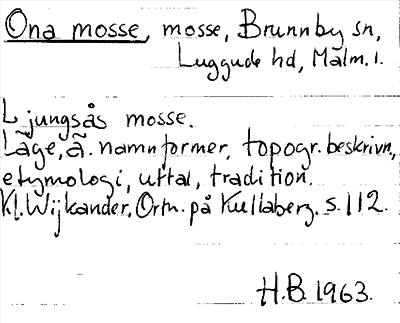 Ona mosse, mosse, Brunnby sn,
Luggude hd, Malm. l.
Ljungsås mosse.
Läge, ä. namnformer, topogr. beskrivn,
etymologi, uttal, tradition.
Kl. Wijkander. Ortn. på Kullaberg. s. 112.
H.B. 1963.